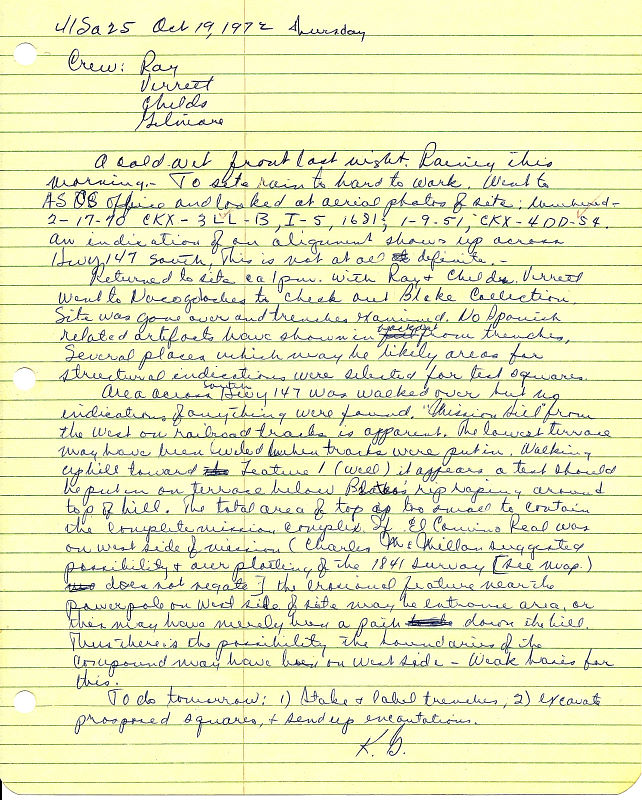 41Sa25 Oct 19, 1972 Thursday
Crew: Ray
Verrett
Childs
Gilmore
A cold wet front last night. Rainey this
morning. - To site rain to hard to work. Went to
ASCS office and looked at aerial photos of site:
2-17-40 CKX-3LL-B, I-5, 1681; 1-9-51, CKX-4DD-54.
an indication of an alignment shows up across
Hwy 147 South. This is not at all definite. -
Returned to site ca 1pm. with Ray & Childs. Verrett
went to Nacogdoches to check out Blake Collection.
Site was gone over and trenches examined. No Spanish
related artifacts have shown in backdirt from trenches,
Several places which may be likely areas for
structural indications were selected for test squares.
Area across south Hwy 147 was walked over but no
indications of anything were found. "Mission Hill" from
the west on railroad tracks is apparent. The lowest terrace
may have been leveled when tracks were put in. Walking
uphill toward Feature 1 (well) it appears a test should
be put in on terrace below rip raping around
top of hill. The total area of top is too small to contain
the complete mission complex. If El Camino Real was
on west side of mission (Charles McMillan suggested
possibility & our plotting of the 1841 survey [see map.)
does not negate] the erosional feature near the
powerpole on west side of site may be entrance area, or
this may have merely been a path down the hill.
Thus there is the possibility the boundaries of the
compound may have been on west side - Weak basis for
this.
To do tomorrow: 1) Stake & label trenches, 2) excavate
prosposed squares, & send up encantations.
K. G.